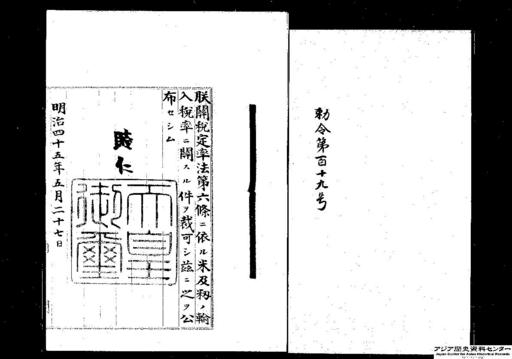 勅令第百十九号
朕關税定率法第六條ニ依ル米及籾ノ輸
入税率ニ關スル件ヲ裁可シ茲ニ之ヲ公
布セシム
睦仁
天皇
御璽
明治四十五年五月二十七日
アジア歴史資料センター
Japan Center for Asian Historical Records